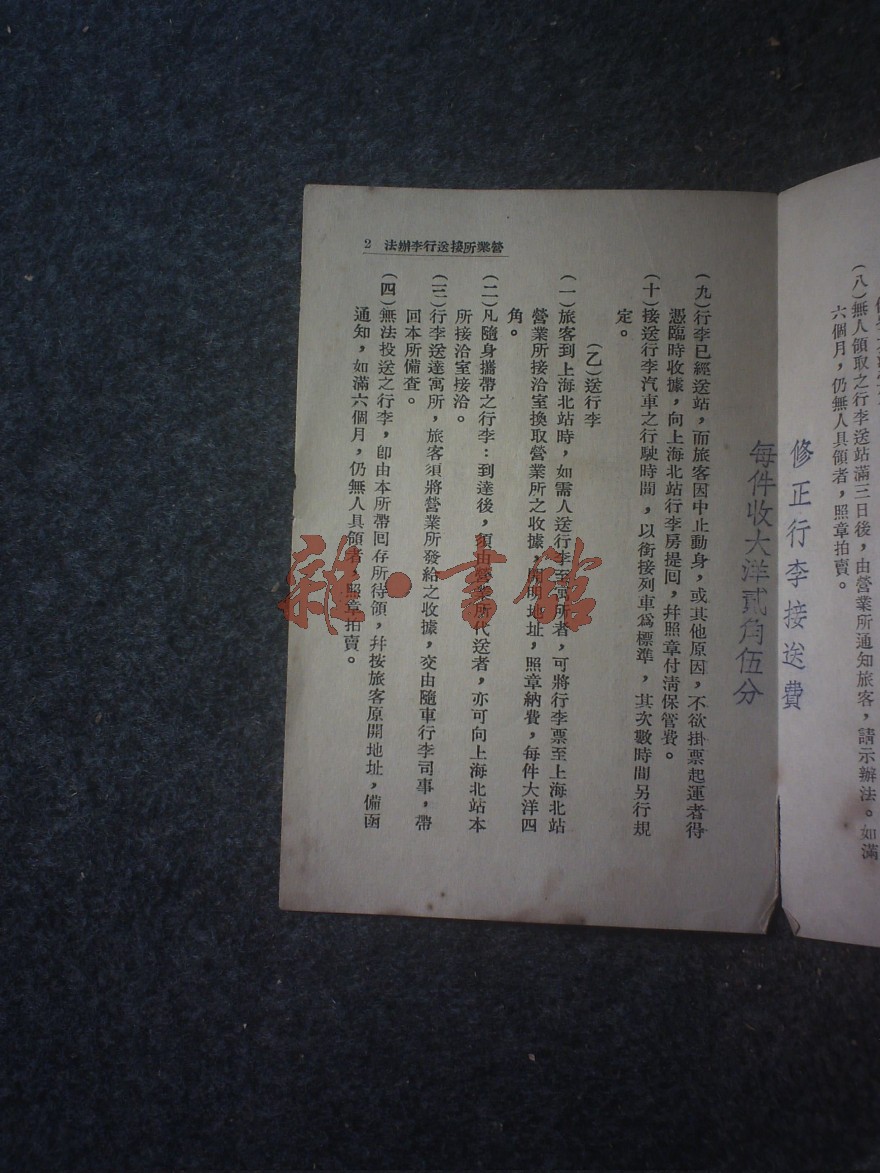 （八）無人領取之行李送站滿三日後，由營業所通知旅客，請示辦法。如滿
六個月，仍無人具領者，照章拍賣。
修正行李接送費
每件收大洋貳角伍分
營業所接送行李辦法 2
（九）行李已經送站，而旅客因中止動身，或其他原因，不欲掛票起運者得
憑臨時收據，向上海北站行李房提回，幷照章付清保管費。
（十）接送行李汽車之行駛時間，以銜接列車爲標準，其次數時間另行規
定。
（乙）送行李
（一）旅客到上海北站時，如需人送行李至寓所者，可將行李票至上海北站
營業所接洽室換取營業所之收據，開明地址，照章納費，每件大洋四
角。
（二）凡隨身攜帶之行李：到達後，須由營業所代送者，亦可向上海北站本
所接洽室接洽。
（三）行李送達寓所，旅客須將營業所發給之收據，交由隨車行李司事，帶
回本所備查。
（四）無法投送之行李，卽由本所帶回存所待領，幷按旅客原開地址，備函
通知，如滿六個月，仍無人具領者，照章拍賣。
雜·書館